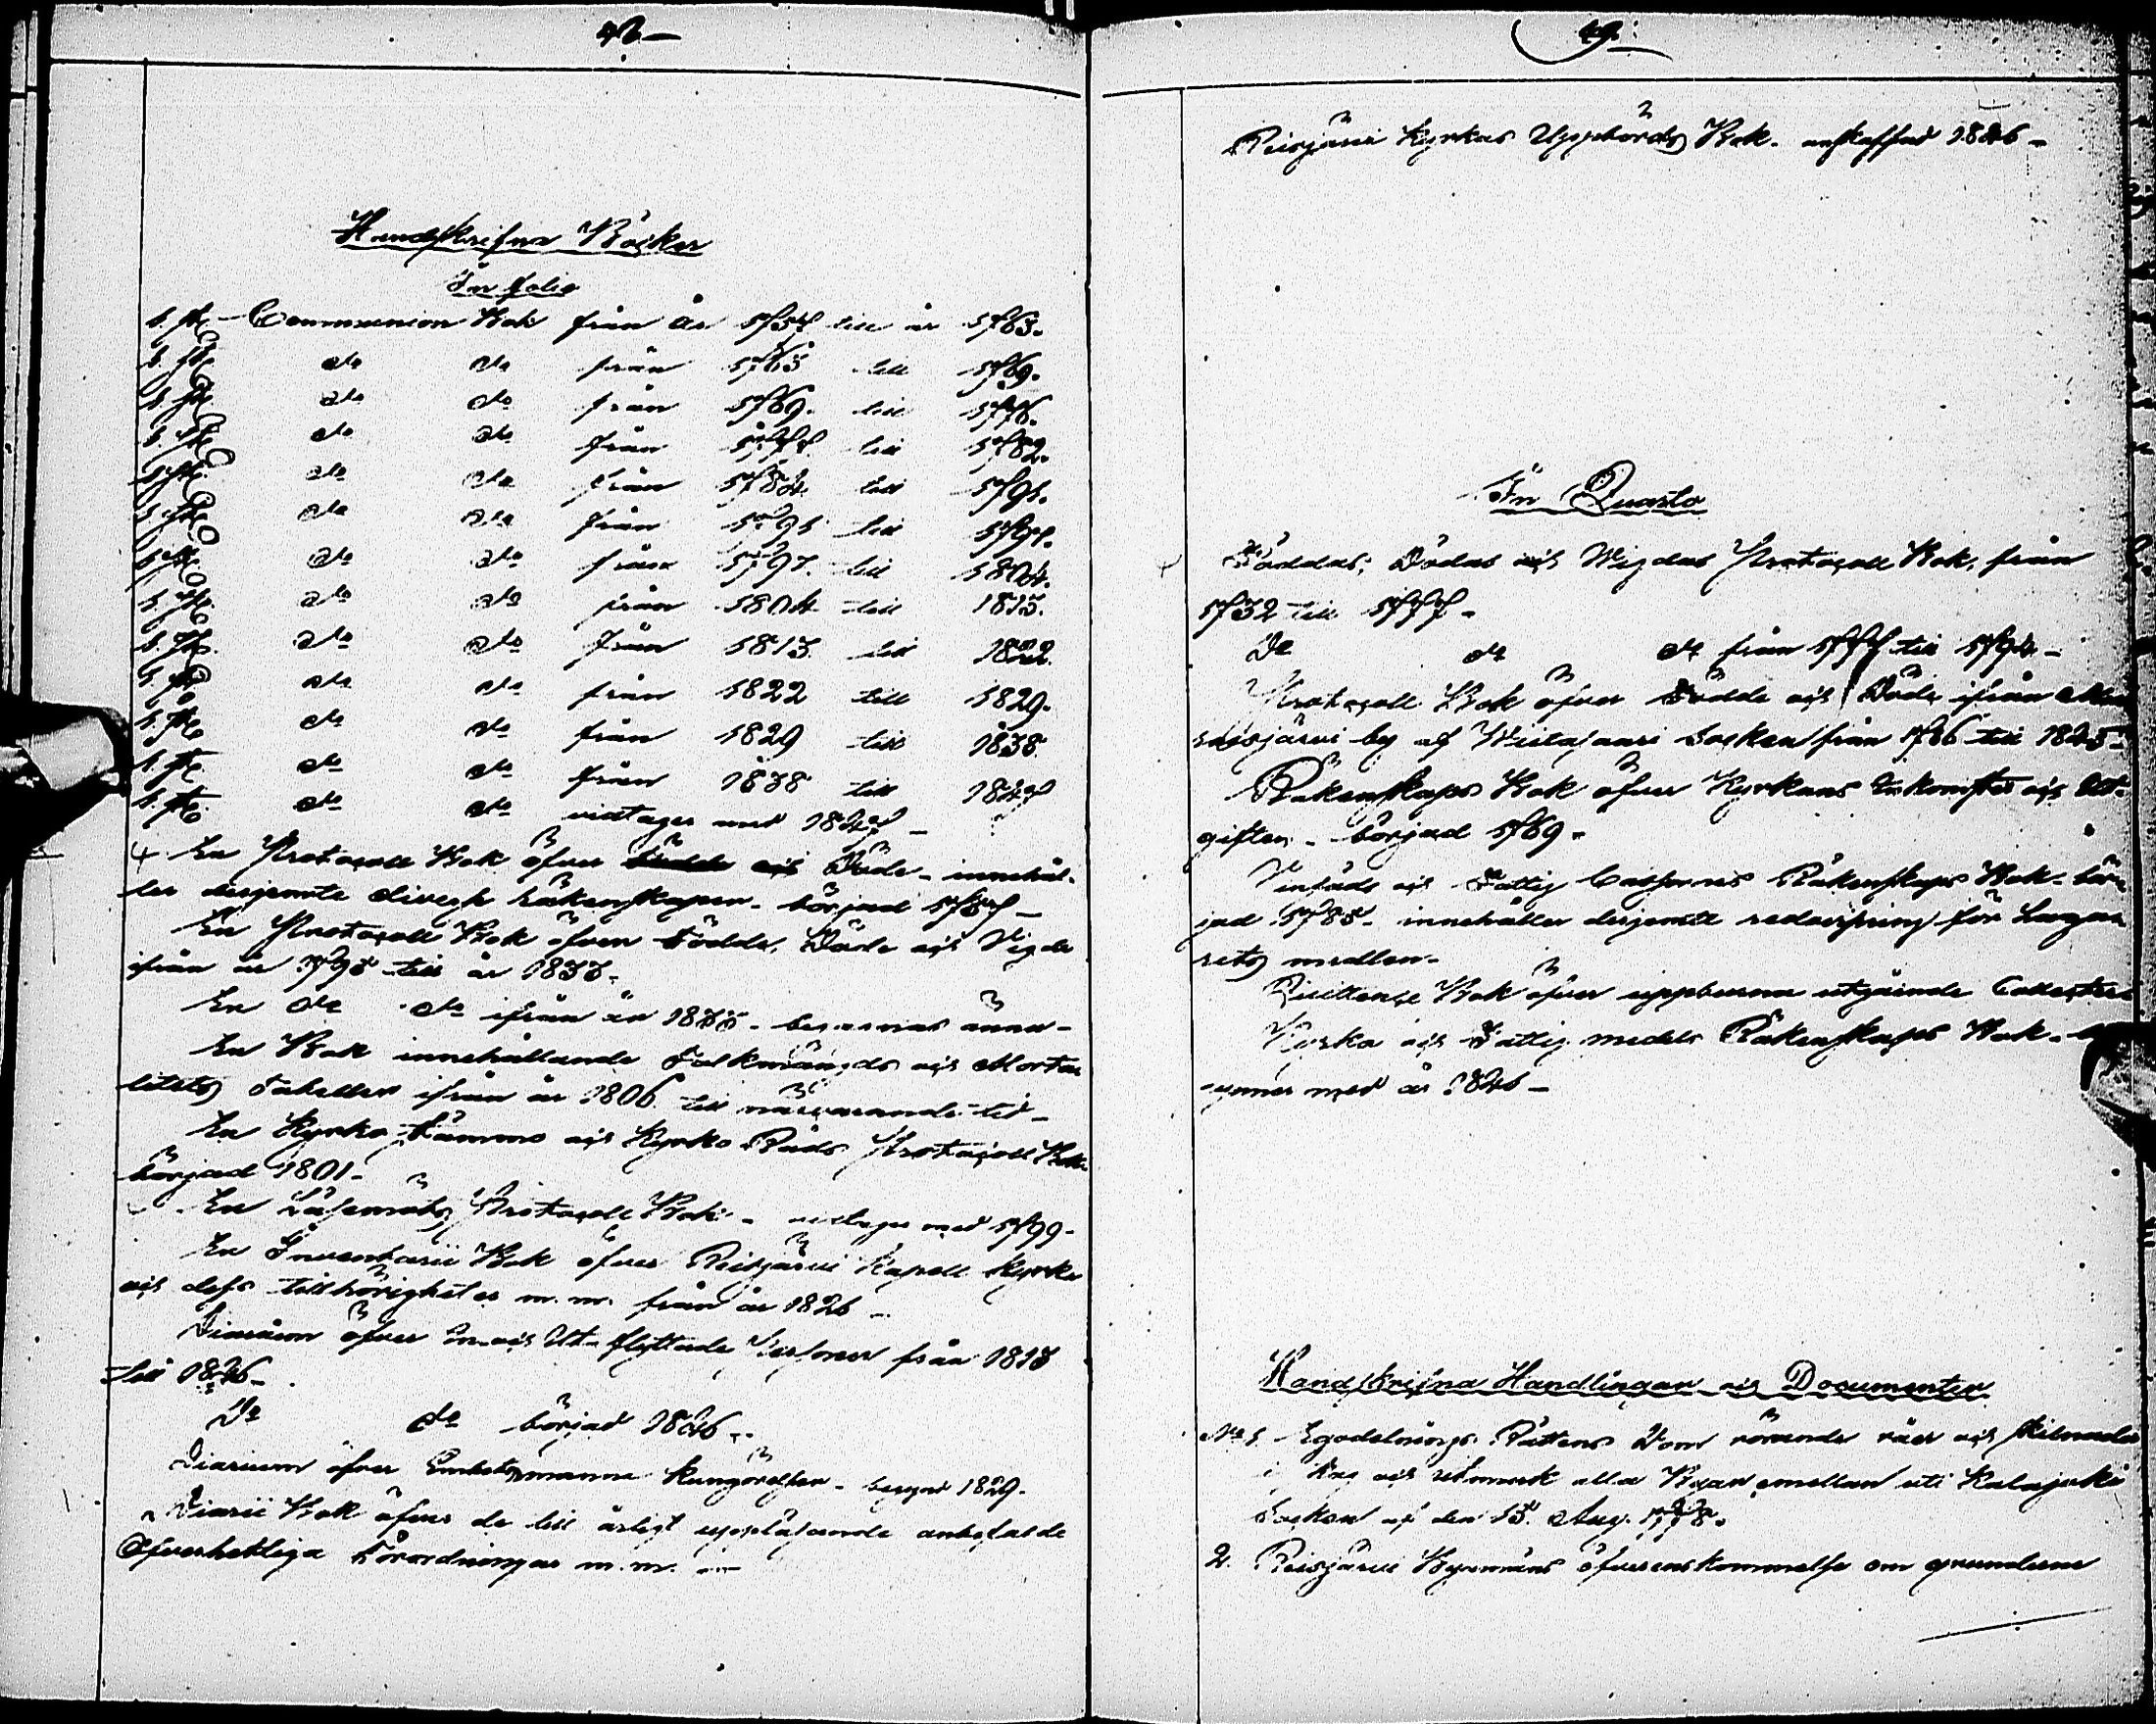 48
Handskrifna Böcker
In folio
1. st. Communion Bok från år 1757 till år 1763.
1. st. do do från 1763 till 1769.
1. st. do do från 1769. till 1776.
1. st. do do från 1777. till 1782.
1. st. do do från 1784. till 1791.
1. st. do do från 1791 till 1797.
1. st. do do från 1797. till 1804.
1. st. do do från 1804 till 1813.
1. st. do do från 1813. till 1822.
1. st. do do från 1822 till 1829.
1. st. do do från 1829 till 1838.
1. st. do do från 1838 till 1847
1. st. do do vidtager med 1847 -
En Protocoll Bok öfver Födde och Döde - innehål-
ler desjemte diverse räkenskaper - började
En Protocoll Bok öfver Födde, Döde och Vigde
ifrån år 1795 till år 1833.
En do do ifrån år begagnas ännu -
En Bok innehållande Folkmängds och Morta
litets Tabeller ifrån år 1806. till närvarande tid -
En Kyrko Stämmo och Kyrko Råds Protocoll Bok
börjad 1801 -
En Läsemöts Protocoll Bok - vidtager med 1799 -
En Inventarii Bok öfver Reisjärvi Kapell Kyrka
och dess tillhörigheter m. m. från år 1826 -
Diarium öfver In- och Ut- flyttade Personer från 1818
till 1846 -
Do do börjad 1846 -
Diarium öfver Embetsmanna Kungörelser - begynt 1829.
Diarii Bok öfver de till årligt uppläsande anbefalde
Öfverhetliga Förordningar m. m. -
49.
Reisjärvi Kyrkas Uppbörds Bok - anskaffad 1846 -
In Quarto
Föddas, Dödas och Wigdas Protocoll Bok, från
1732 till 1777 -
Do do do från 1777 till 1794 -
Protocoll Bok öfver Födde och Döde ifrån
by af Wiitasaari Socken från 1786 till
Räkenskaps Bok öfver Kyrkans Inkomster och Ut-
gifter - börjad 1769 -
och Fattig Cassornes Räkenskaps Bok - bör-
jad 1785 - innehåller desjemte redovisning för Laza-
rets medlen -
Quittence Bok öfver uppburna utgående Collecter
Kyrko och Fattig medels Räkenskaps Bok -
-ynner med år 1846 -
Handskrifna Handlingar och Documenter
No 1. Egodelnings Rättens Dom rörande råer och skilnader
i skog och utmark alla Byar emellan uti Kalajoki
Socken af den 15. Aug. 1778.
2. Reisjärvi Byamäns öfverenskommelse om grunderne